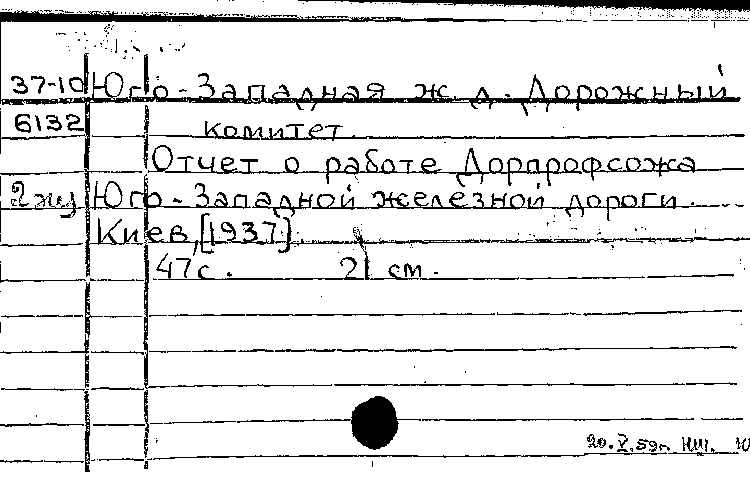 37-10 Юго-Западная ж. д. Дорожный
6132 комитет.
Отчет о работе Дорпрофсожа
2 экз Юго-Западной железной дороги.
Киев, [1937].
47 с. 21 см.
20.V.59г.